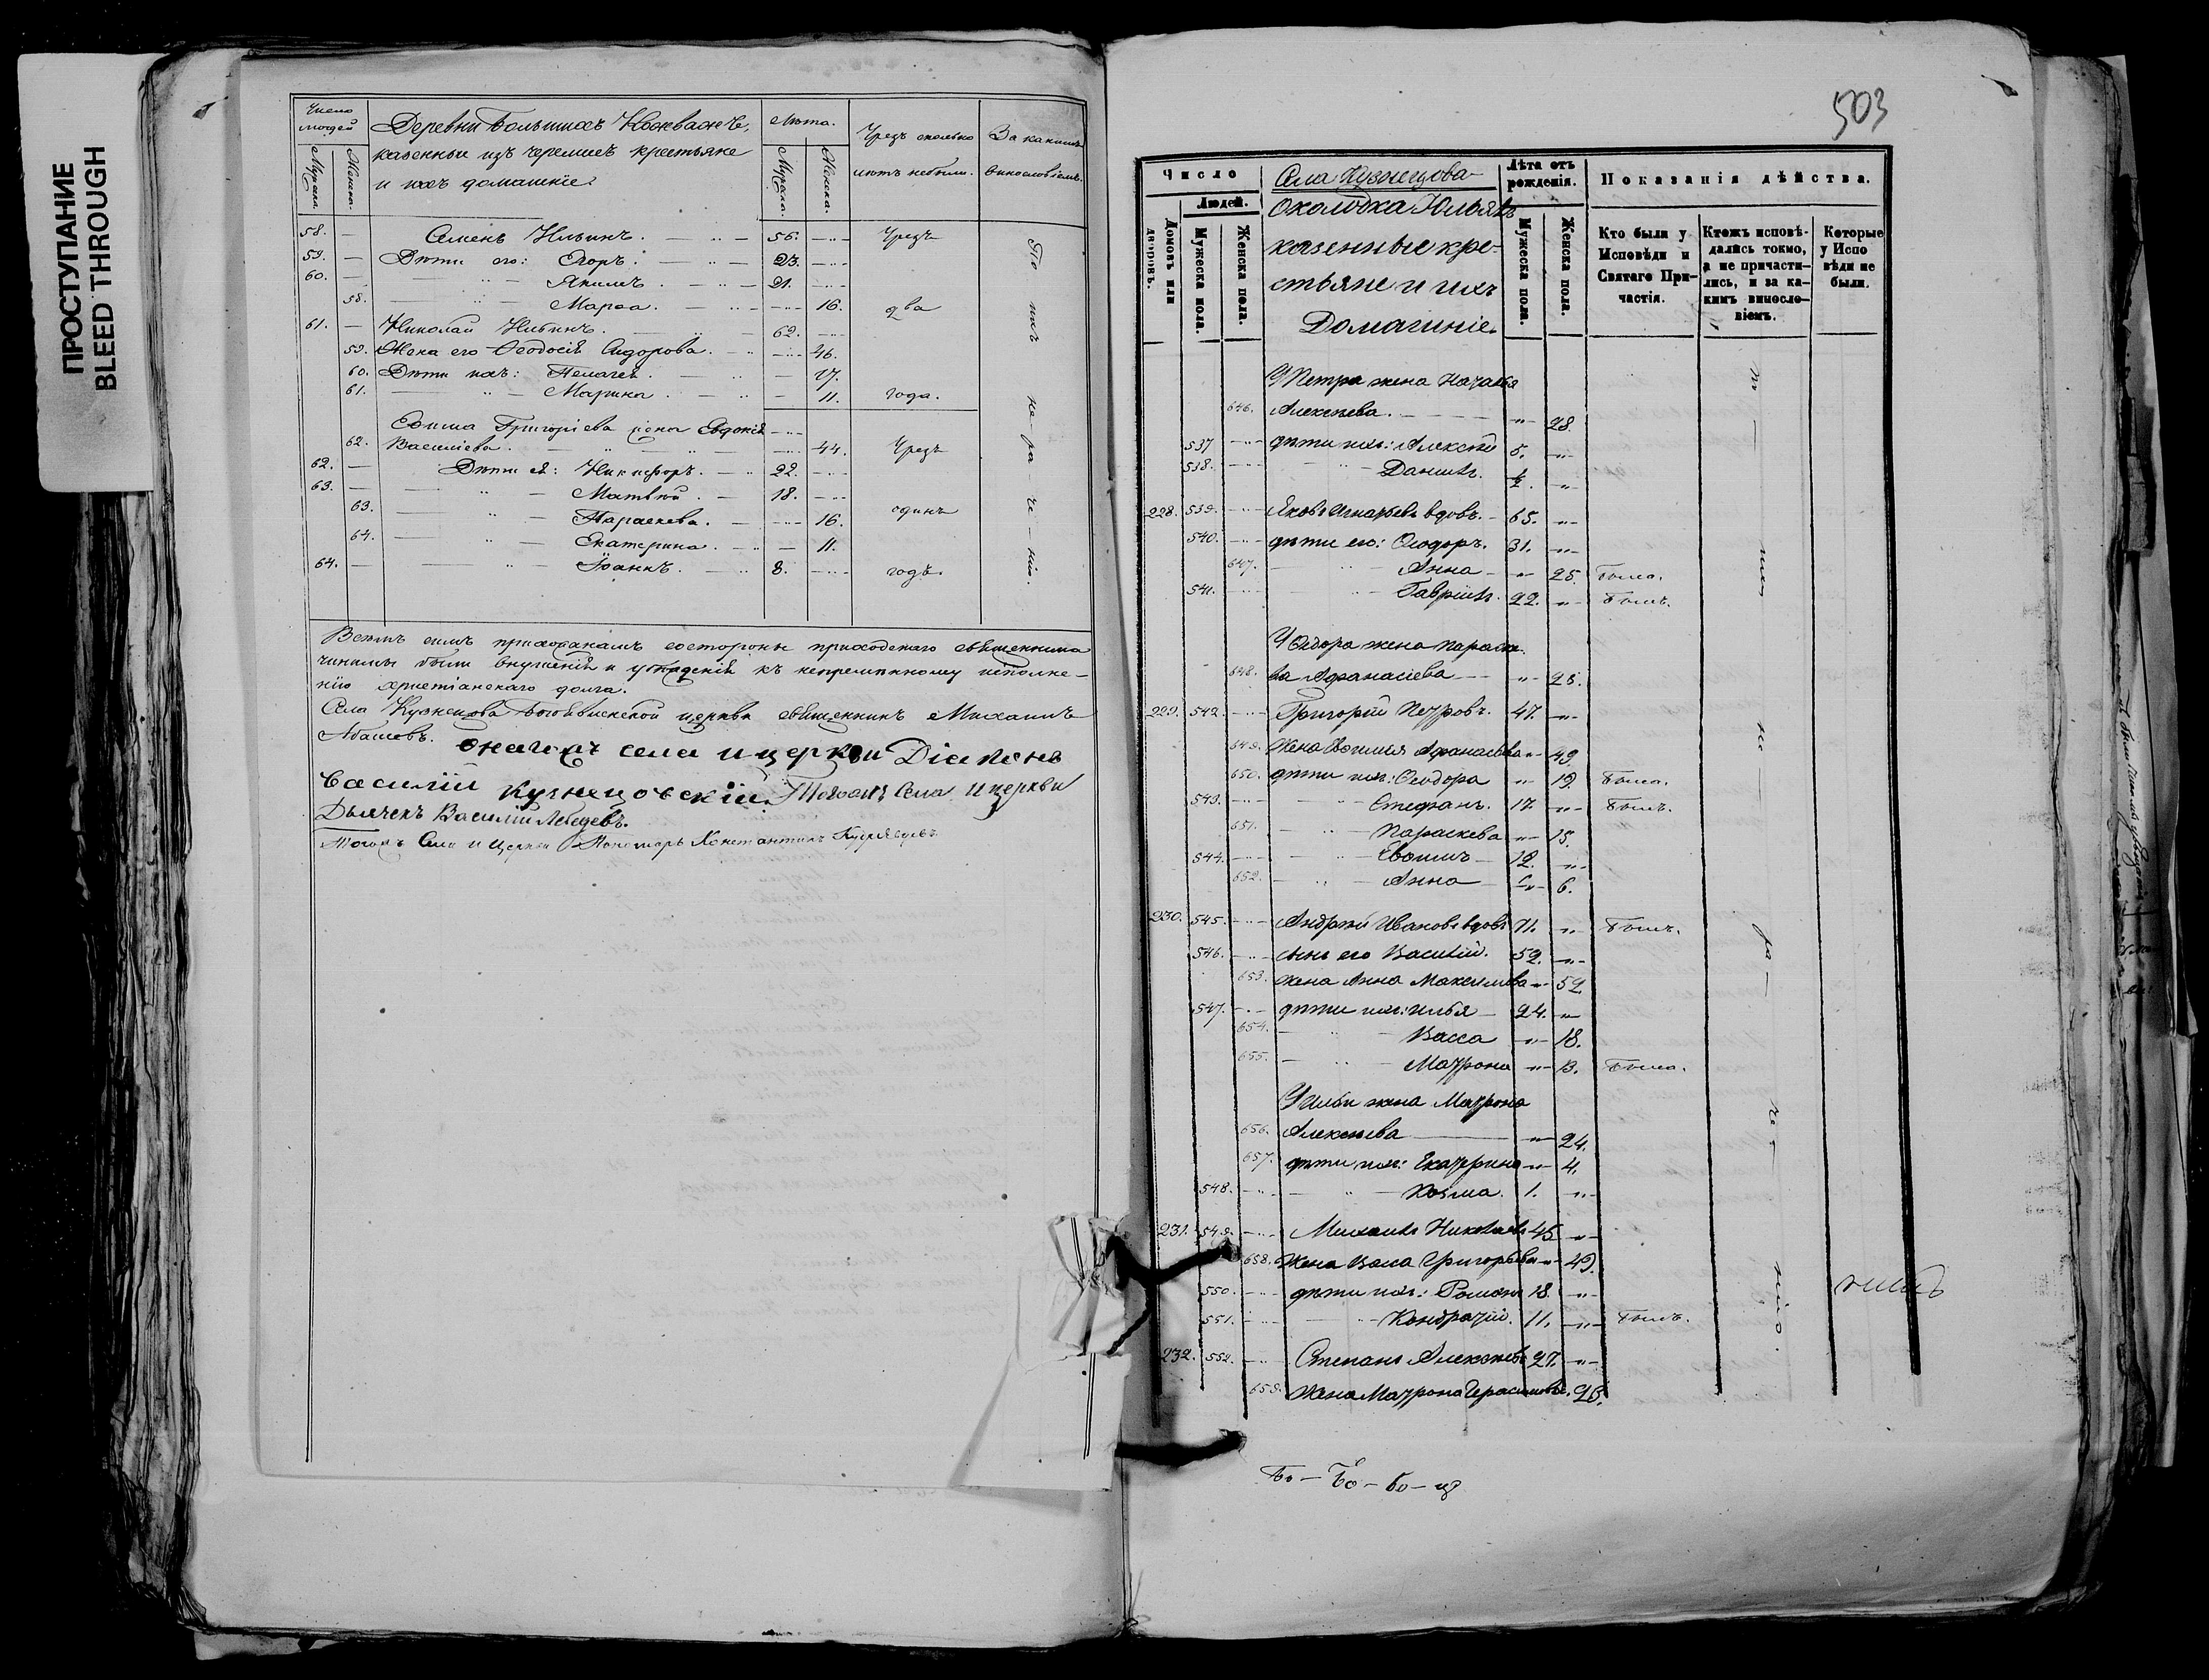 ПРОСТУПАНИЕ
BLEED THROUGH
Число людей
Мужска. Женска.
Деревни Большихъ
казенные изъ черемисъ крестьяне
и ихъ домашніе.
Лѣта.
Мужска. Женска.
Чрезъ сколько
лѣтъ небыли.
За какимъ
винословіемъ.
58. — Семенъ Ильинъ. 56. Чрезъ
59. — Дѣти его: Егоръ. 23.
60. — Якимъ. 21.
58. Марѳа. 16. два
61. — Николай Ильинъ. 62.
59. Жена его Ѳеодосія Сидорова. 46.
60. Дѣти ихъ: Пелагея. 17.
61. Марина. 11. года.
Ефима Григоріева жена Евдокія
62. Василіева. 44. Чрезъ
62. — Дѣти ея: Никифоръ. 22.
63. — Матвѣй. 18.
63. Параскева. 16. одинъ
64. Екатерина. 11.
64. — Іоаннъ. 8. годъ.
По ихъ не-ра-че-нію.
Всѣмъ симъ прихожанамъ состороны приходскаго священника
чинимы были внушенія и убѣжденія къ непремѣнному исполне-
нію христіанскаго долга.
Села Кузнецова Богоявленской церкви священникъ Михаилъ
Абашевъ. Онагожъ села и церкви Діаконъ
Василій Кузнецовскій. Тогожъ Села и церкви
Дьячекъ Василій Лебедевъ.
Тогожъ Села и Церкви Пономарь Константинъ Кудрявцевъ
503
Число
Домовъ или дворовъ.
Людей.
Мужеска пола.
Женска пола.
Села Кузнецова
Околодка Юльялъ
казенные кре-
стьяне и ихъ
Домашніе.
Лѣта отъ рожденія.
Мужеска пола.
Женска пола.
Показанія дѣйства.
Кто были у Исповѣди и Святаго При-частія.
Ктожъ исповѣ-дались токмо, а не причасти-лись, и за ка-кимъ винословіемъ.
Которые у Испо вѣди не были.
У Петра жена Наталья
646. Алексѣева. 28.
537 дѣти ихъ: Алексѣй 5.
538. Даніилъ.
228. 539. Яковъ Игнатьевъ вдовъ. 65.
540. дѣти его: Ѳеодоръ. 31.
647. Анна 25. Была.
541. Гавріилъ. 22. Былъ.
У Ѳедора жена Параске-
648. ва Аѳанасіева 25.
229. 542. Григорій Петровъ. 47.
649. Жена Евфимія Аѳанасьева 49.
650. дѣти ихъ: Ѳеодора 19. Была.
543. Стефанъ. 17. Былъ.
651. Параскева 15.
544. Евфимъ 12.
652. Анна 6.
230. 545. Андрей Ивановъ вдовъ 71. Былъ.
546. сынъ его Василій. 52.
653. жена Анна Максимова 52
547. дѣти ихъ: Илья 24.
654. Васса 18.
655. Матрона 13. Была.
У Ильи жена Матрона
656. Алексѣева 24.
657. дѣти ихъ: Екатерина 4.
548. Козьма. 1.
231. 549. Михаилъ Николаевъ 45
658. Жена Васса Григорьева 49.
550. дѣти ихъ: Романъ 18.
551. Кондратій. 11. Былъ.
232. 552. Степанъ Алексѣевъ 27.
659. Жена Матрона Герасимова. 26.
по ихъ не-ра-че-нію.